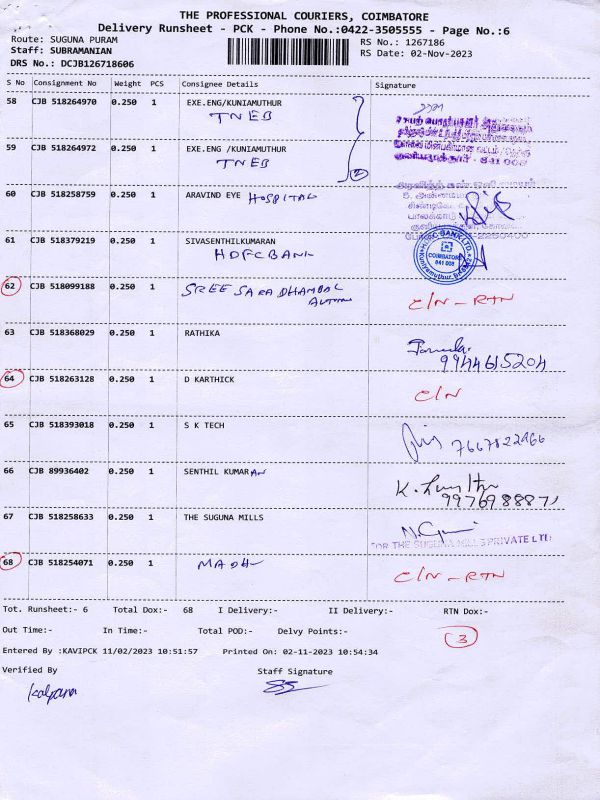 THE PROFESSIONAL COURIERS, COIMBATORE
Delivery Runsheet - PCK - Phone No.:0422-3505555 - Page No.:6
Route: SUGUNA PURAM
Staff: SUBRAMANIAN
DRS No.: DCJB126718606
RS No.: 1267186
RS Date: 02-Nov-2023
S No Consignment No Weight PCS Consignee Details Signature
58 CJB 518264970 0.250 1 EXE.ENG/KUNIAMUTHUR
TNEB
59 CJB 518264972 0.250 1 EXE.ENG /KUNIAMUTHUR
TNEB
2
60 CJB 518258759 0.250 1 ARAVIND EYE HOSPITAL
61 CJB 518379219 0.250 1 SIVASENTHILKUMARAN
HDFC BANK
HDFC BANK LTD.
COIMBATORE
641 008
62 CJB 518099188 0.250 1 SREE SARADHAMBAL
C/N - RTN
63 CJB 518368029 0.250 1 RATHIKA
9944615204
64 CJB 518263128 0.250 1 D KARTHICK
C/N
65 CJB 518393018 0.250 1 S K TECH
7667822966
66 CJB 89936402 0.250 1 SENTHIL KUMARAN
67 CJB 518258633 0.250 1 THE SUGUNA MILLS
FOR THE SUGUNA MILLS PRIVATE LTD
68 CJB 518254071 0.250 1 MADH
C/N - RTN
Tot. Runsheet:- 6 Total Dox:- 68 I Delivery:- II Delivery:- RTN Dox:-
Out Time:- In Time:- Total POD:- Delvy Points:-
3
Entered By :KAVIPCK 11/02/2023 10:51:57 Printed On: 02-11-2023 10:54:34
Verified By Staff Signature
Kalpana